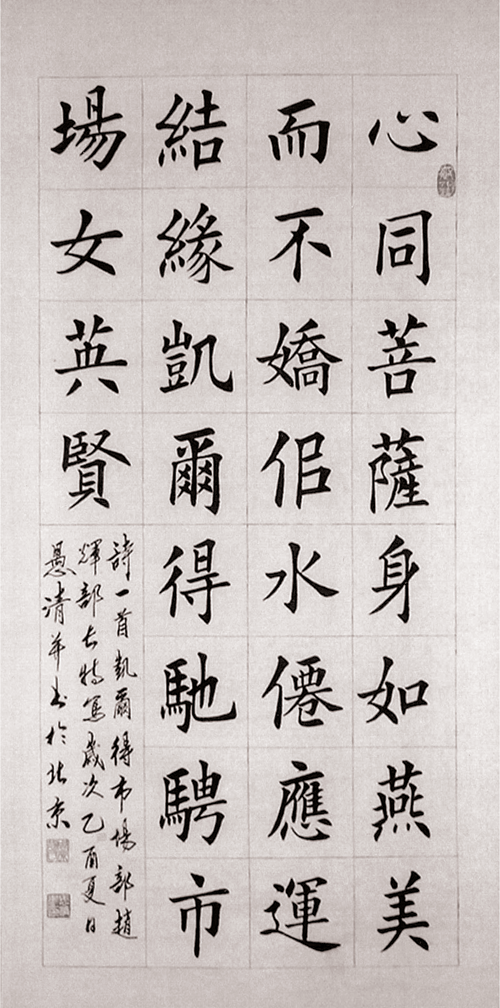 心同菩薩身如燕美
而不嬌佀水僊應運
結緣凱爾得馳騁市
場女英賢
詩一首凱爾得市場部趙
輝部长特寫歲次乙酉夏日
愚清并书於北京